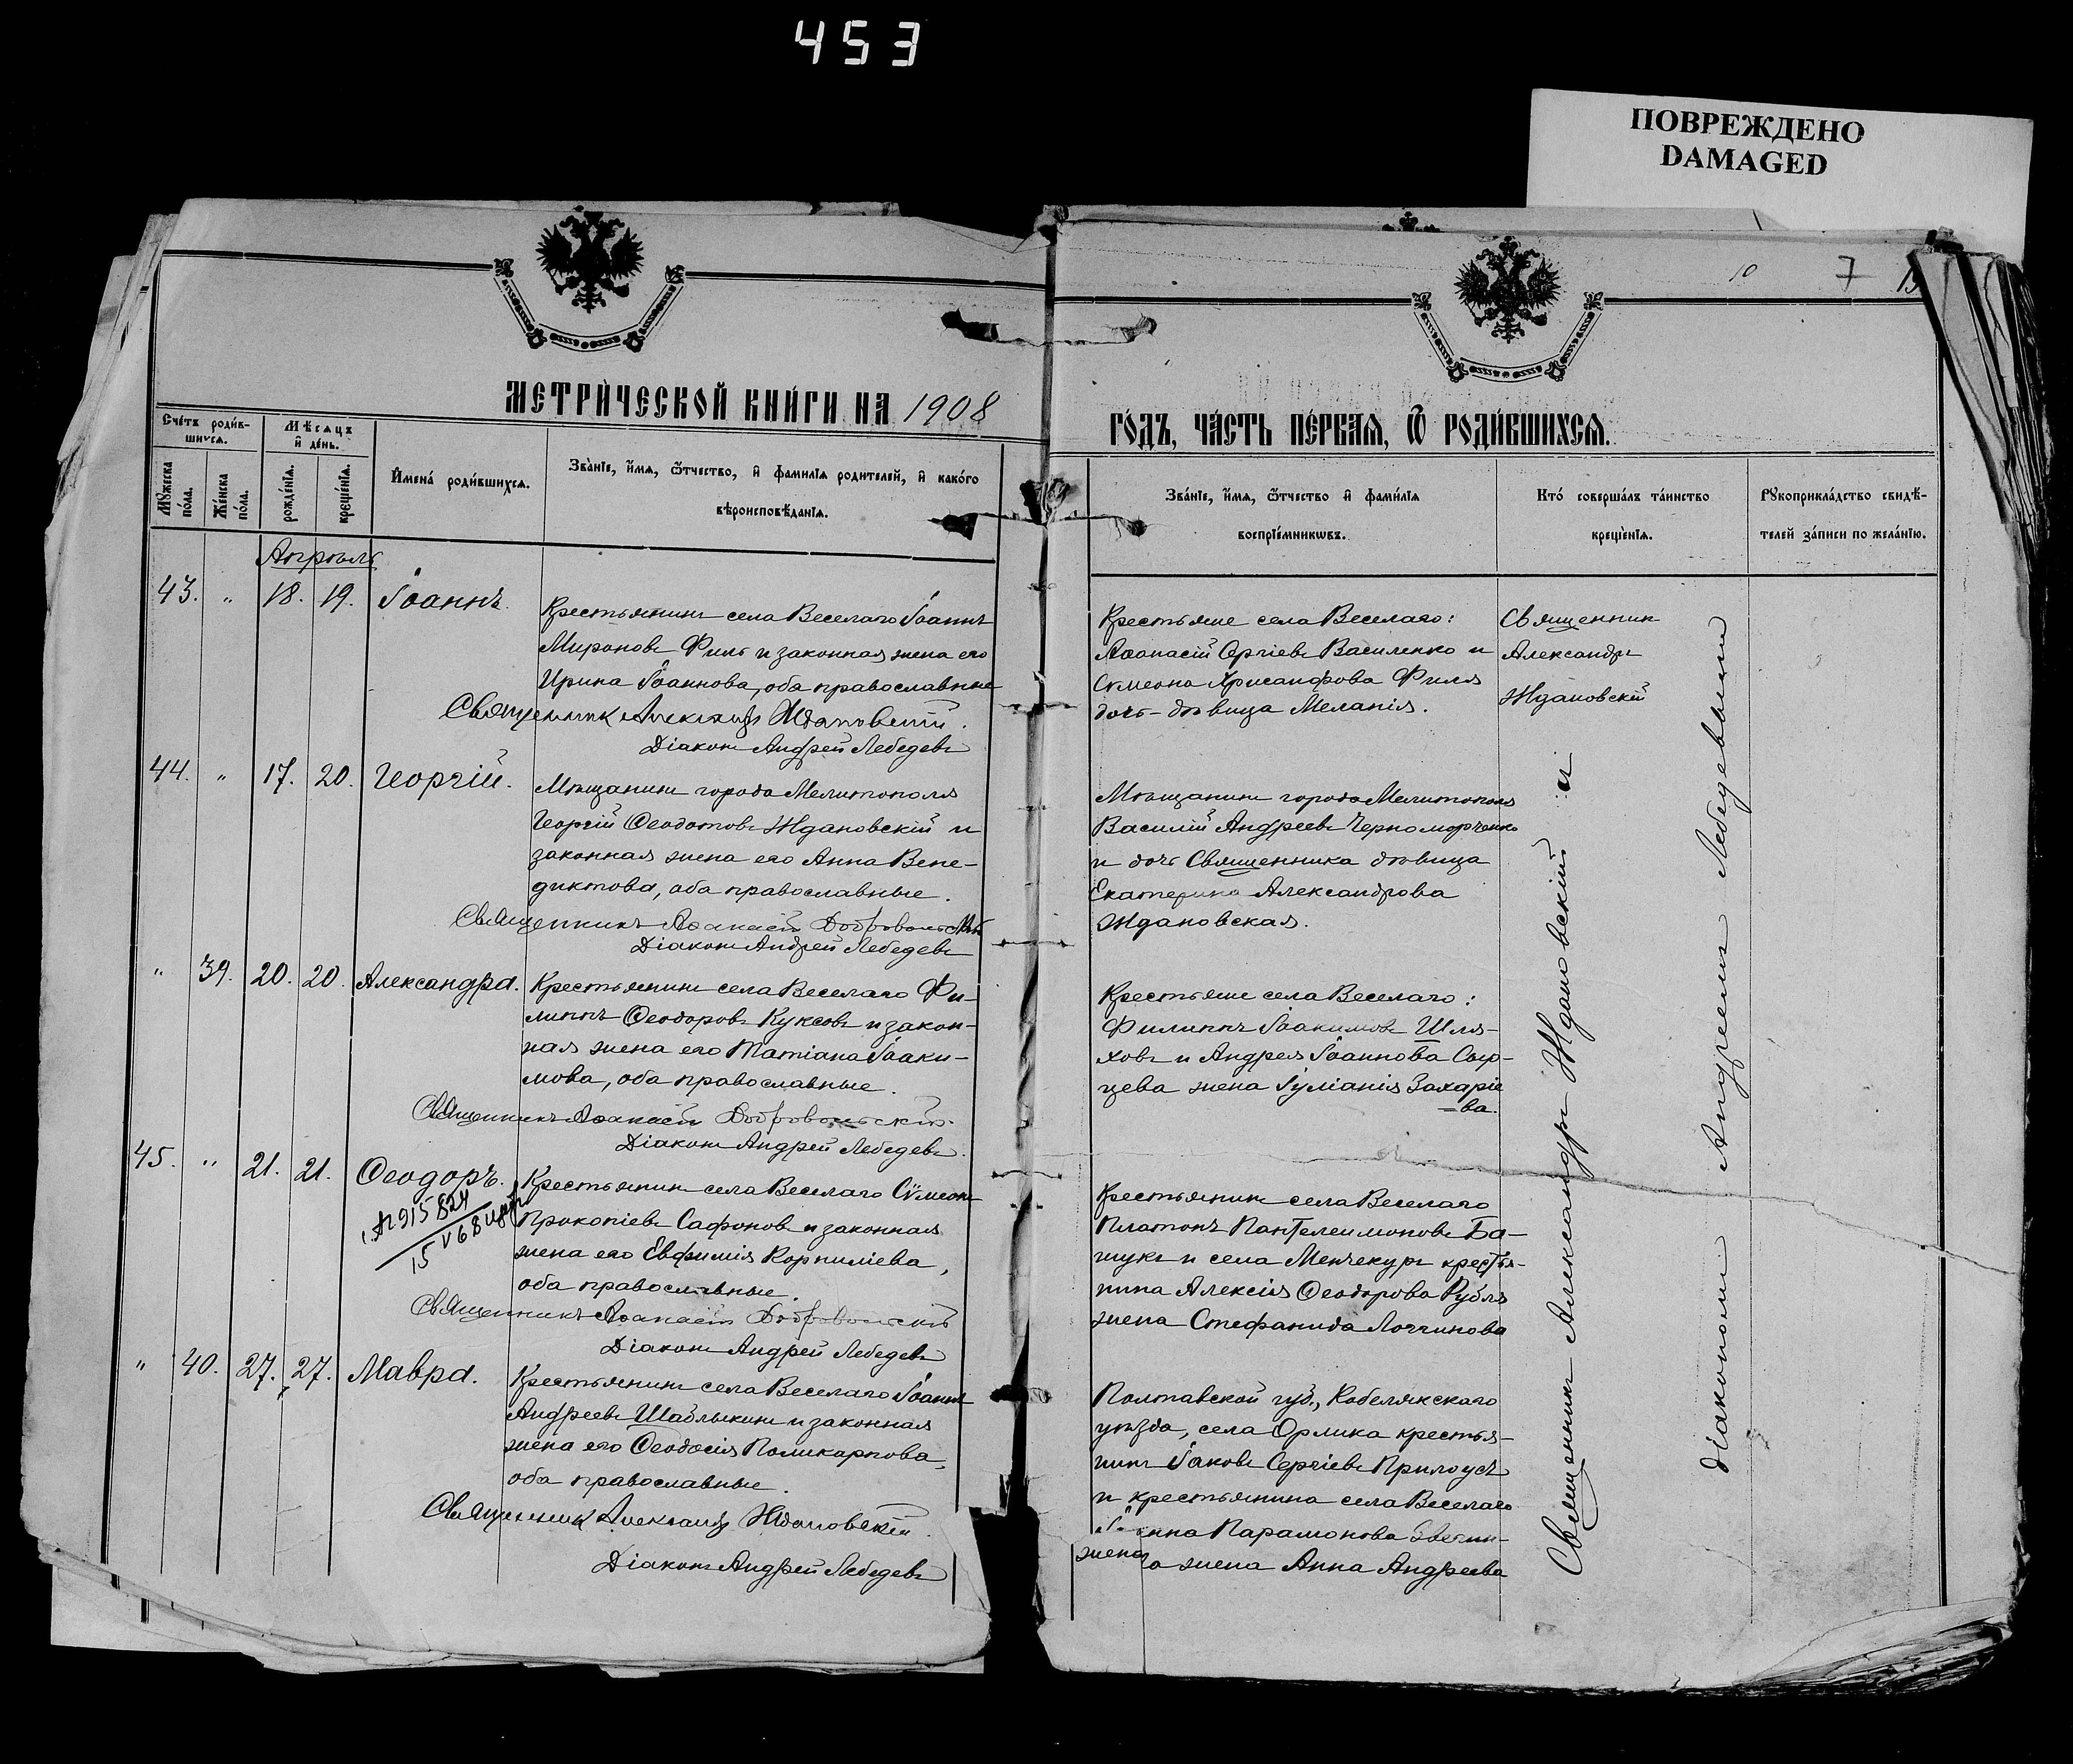 453
ПОВРЕЖДЕНО
DAMAGED
10 7
МЕТРИ́ЧЕСКОЙ КНИ́ГИ НА 1908
ГО́ДЪ, ЧА́СТЬ ПЕ́РВАЯ, Ѿ РОДИ́ВШИХСЯ.
Сче́тъ роди́в-
шихся.
Мѣ́сяцъ
и҆ де́нь.
Мꙋ́жеска
по́ла.
Же́нска
по́ла.
рожде́нїя.
креще́нїя.
И҆мена̀ роди́вшихся.
Зва́нїе, и҆́мя, ѻ҆́тчество, и҆ фами́лїя роди́телей, и҆ како́го
вѣроисповѣ́данїя.
Зва́нїе, и҆́мя, ѻ҆́тчество и҆ фами́лїя
воспрїе́мникѡвъ.
Кто́ соверша́лъ та́инство
креще́нїя.
Рꙋкоприкла́дство свидѣ́-
телей за́писи по жела́нїю.
Апрѣль
43. " 18. 19. Іоаннъ.
Крестьянинъ села Веселаго Іоаннъ
Мироновъ Филь и законная жена его
Ирина Іоаннова, оба православные
Священникъ Александръ Ждановскій.
Діаконъ Андрей Лебедевъ
Крестьяне села Веселаго:
Аѳанасій Сергіевъ Василенко и
Сѵмеона Хрисанфова Филя
дочь-дѣвица Меланія.
Священникъ
Александръ
Ждановскій
44. " 17. 20. Георгій.
Мѣщанинъ города Мелитополя
Георгій Ѳеодотовъ Ждановскій и
законная жена его Анна Вене-
диктова, оба православные.
Священникъ Аѳанасій Добровольскій
Діаконъ Андрей Лебедевъ
Мѣщанинъ города Мелитополя
Василій Андреевъ Черноморченко
и дочь Священника дѣвица
Екатерина Александрова
Ждановская.
" 39. 20. 20. Александра.
Крестьянинъ села Веселаго Фи-
липпъ Ѳеодоровъ Куксовъ и закон-
ная жена его Татіана Іоаки-
мова, оба православные.
Священникъ Аѳанасій Добровольскій.
Діаконъ Андрей Лебедевъ.
Крестьяне села Веселаго:
Филиппъ Іоакимовъ Шля-
ховъ и Андрея Іоаннова Сыр-
цева жена Іуліанія Захаріе
=ва.
45. " 21. 21. Ѳеодоръ.
15 V 68
Крестьянинъ села Веселаго Сѵмеонъ
Прокопіевъ Сафоновъ и законная
жена его Евфимія Корниліева,
оба православные.
Священникъ Аѳанасій Добровольскій
Діаконъ Андрей Лебедевъ
Крестьянинъ села Веселаго
Платонъ Пантелеимоновъ Ба-
шукъ и села Менчекуръ крестья-
нина Алексія Ѳеодорова Рубля
жена Стефанида Логгинова
" 40. 27. 27. Мавра.
Крестьянинъ села Веселаго Іоаннъ
Андреевъ Шаблыкинъ и законная
жена его Ѳеодосія Поликарпова,
оба православные.
Священникъ Александръ Ждановскій.
Діаконъ Андрей Лебедевъ
Полтавской губ., Кобелякскаго
уѣзда, села Орлика крестья-
нинъ Іаковъ Сергіевъ Прилоусъ
и крестьянина села Веселаго
Парамонова
жена
жена Анна Андреева
Священникъ Александръ Ждановскій и
діакономъ Андреемъ Лебедевымъ